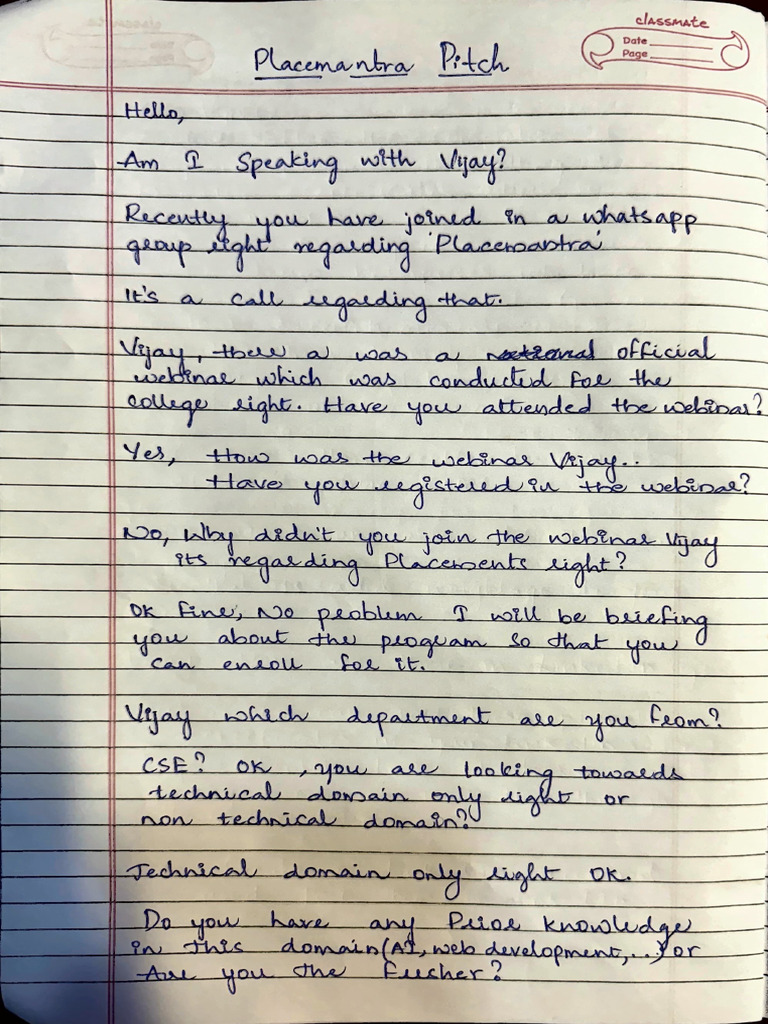 classmate
Date
Page
Placemantra Pitch
Hello,
Am I Speaking with Vijay?
Recently you have joined in a whatsapp
group right regarding 'Placemantra'
It's a call regarding that.
Vijay, there a was a official
webinar which was conducted for the
college right. Have you attended the webinar?
Yes, How was the webinar Vijay..
Have you registered in the webinar?
No, Why didn't you join the webinar Vijay
its regarding Placements right?
OK fine, No problem I will be briefing
you about the program so that you
can enroll for it.
Vijay which department are you from?
CSE? OK, you are looking towards
technical domain only right or
non technical domain?
Technical domain only right OK.
Do you have any Prior knowledge
in this domain(AI, web development,...) or
Are you the fresher?